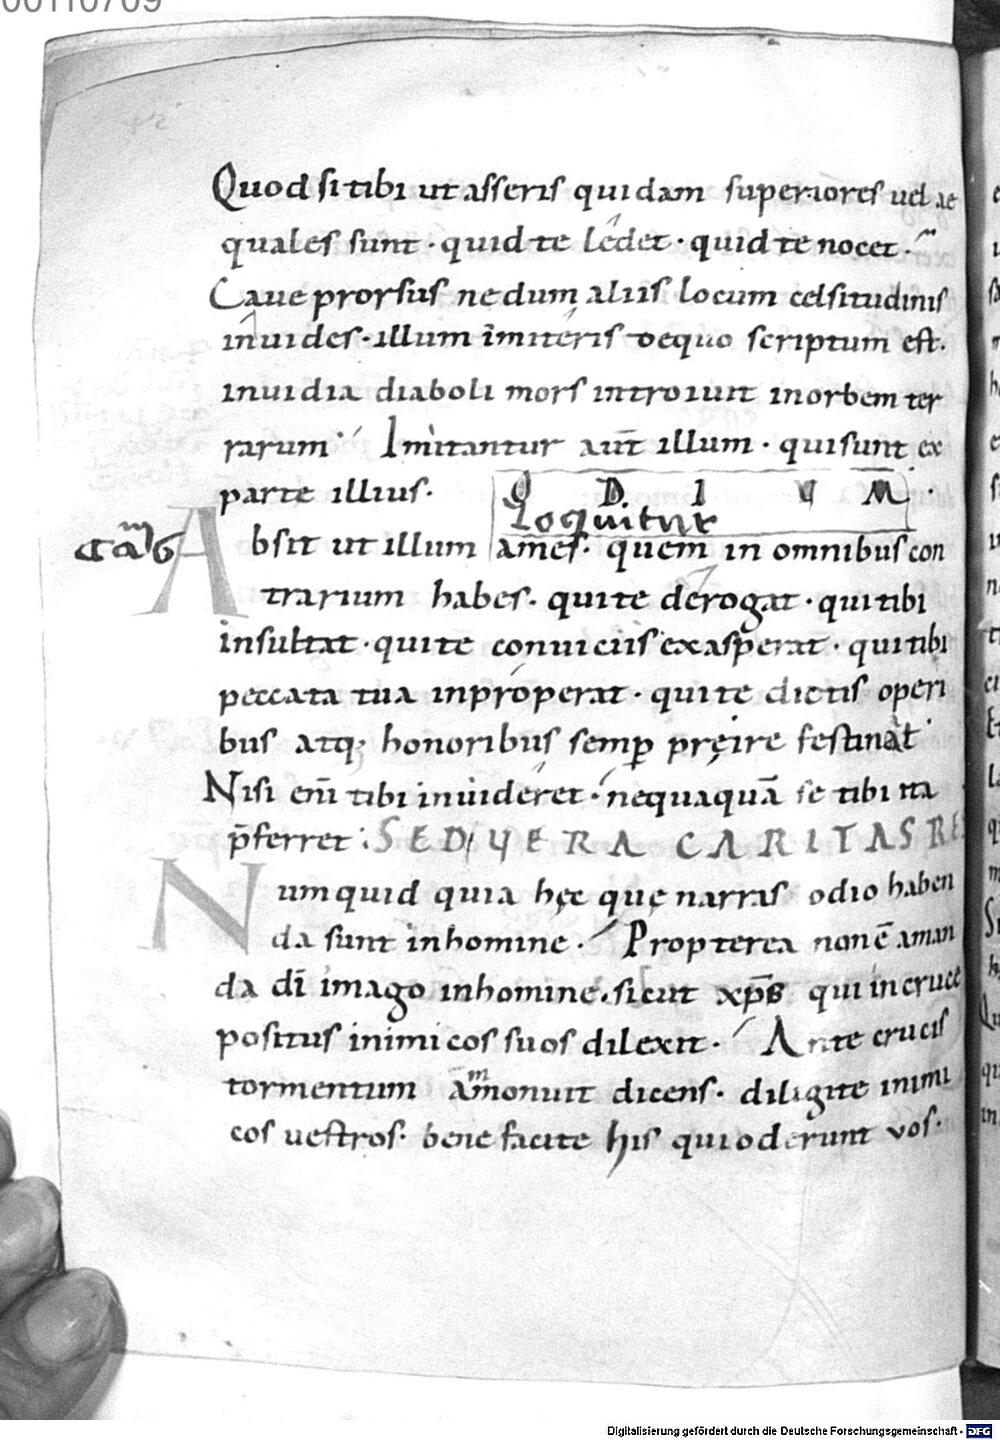 00110709
Quod si tibi ut asseris quidam superiores uel ae
quales sunt · quid te ledet · quid te nocet ·
Caue prorsus ne dum aliis locum celsitudinis
inuides · illum imiteris de quo scriptum est.
inuidia diaboli mors introiuit in orbem ter
rarum · Imitantur aut̄ illum · qui sunt ex
parte illius · O D I U M
Loquitur
Absit ut illum ames · quem in omnibus con
trarium habes · qui te derogat · qui tibi
insultat · qui te conuiciis exasperat · qui tibi
peccata tua inproperat · qui te dictis operi
bus atq; honoribus semp̱ pręire festinat ·
Nisi eni̅ tibi inuideret · nequaquā se tibi ita
p̄ferret : SED VERA CARITAS RE
Numquid quia hęc quę narras odio haben
da sunt in homine · Propterea non ē aman
da dī imago in homine · sicut xp̄s qui in cruce
positus inimicos suos dilexit · Ante crucis
tormentum ammonuit dicens · diligite inimi
cos uestros · bene facite his qui oderunt vos ·
Digitalisierung gefördert durch die Deutsche Forschungsgemeinschaft - DFG